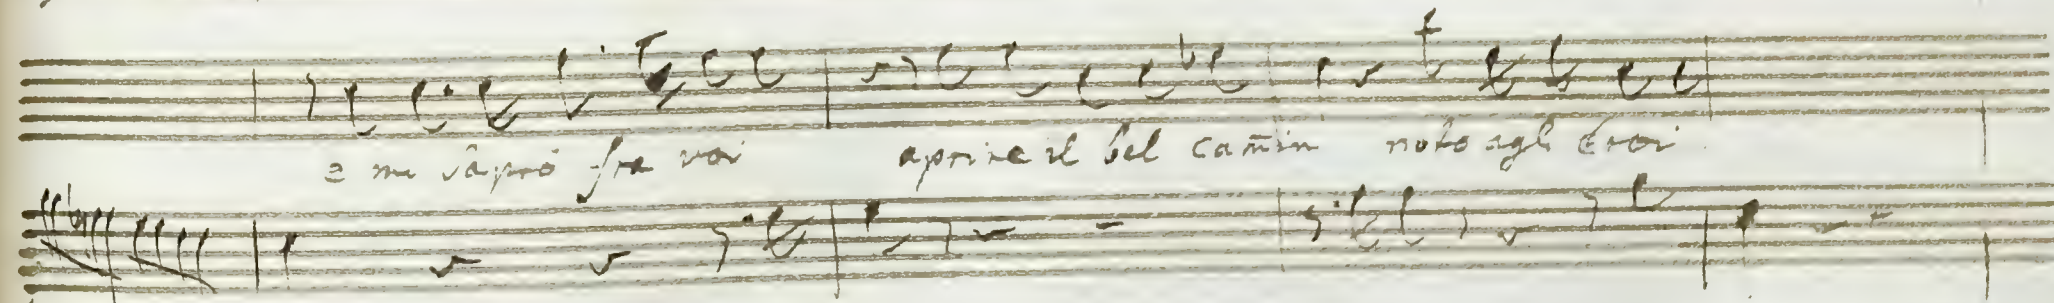 e mi sâprò fra voi aprire il bel cam̄in noto agli Eroi